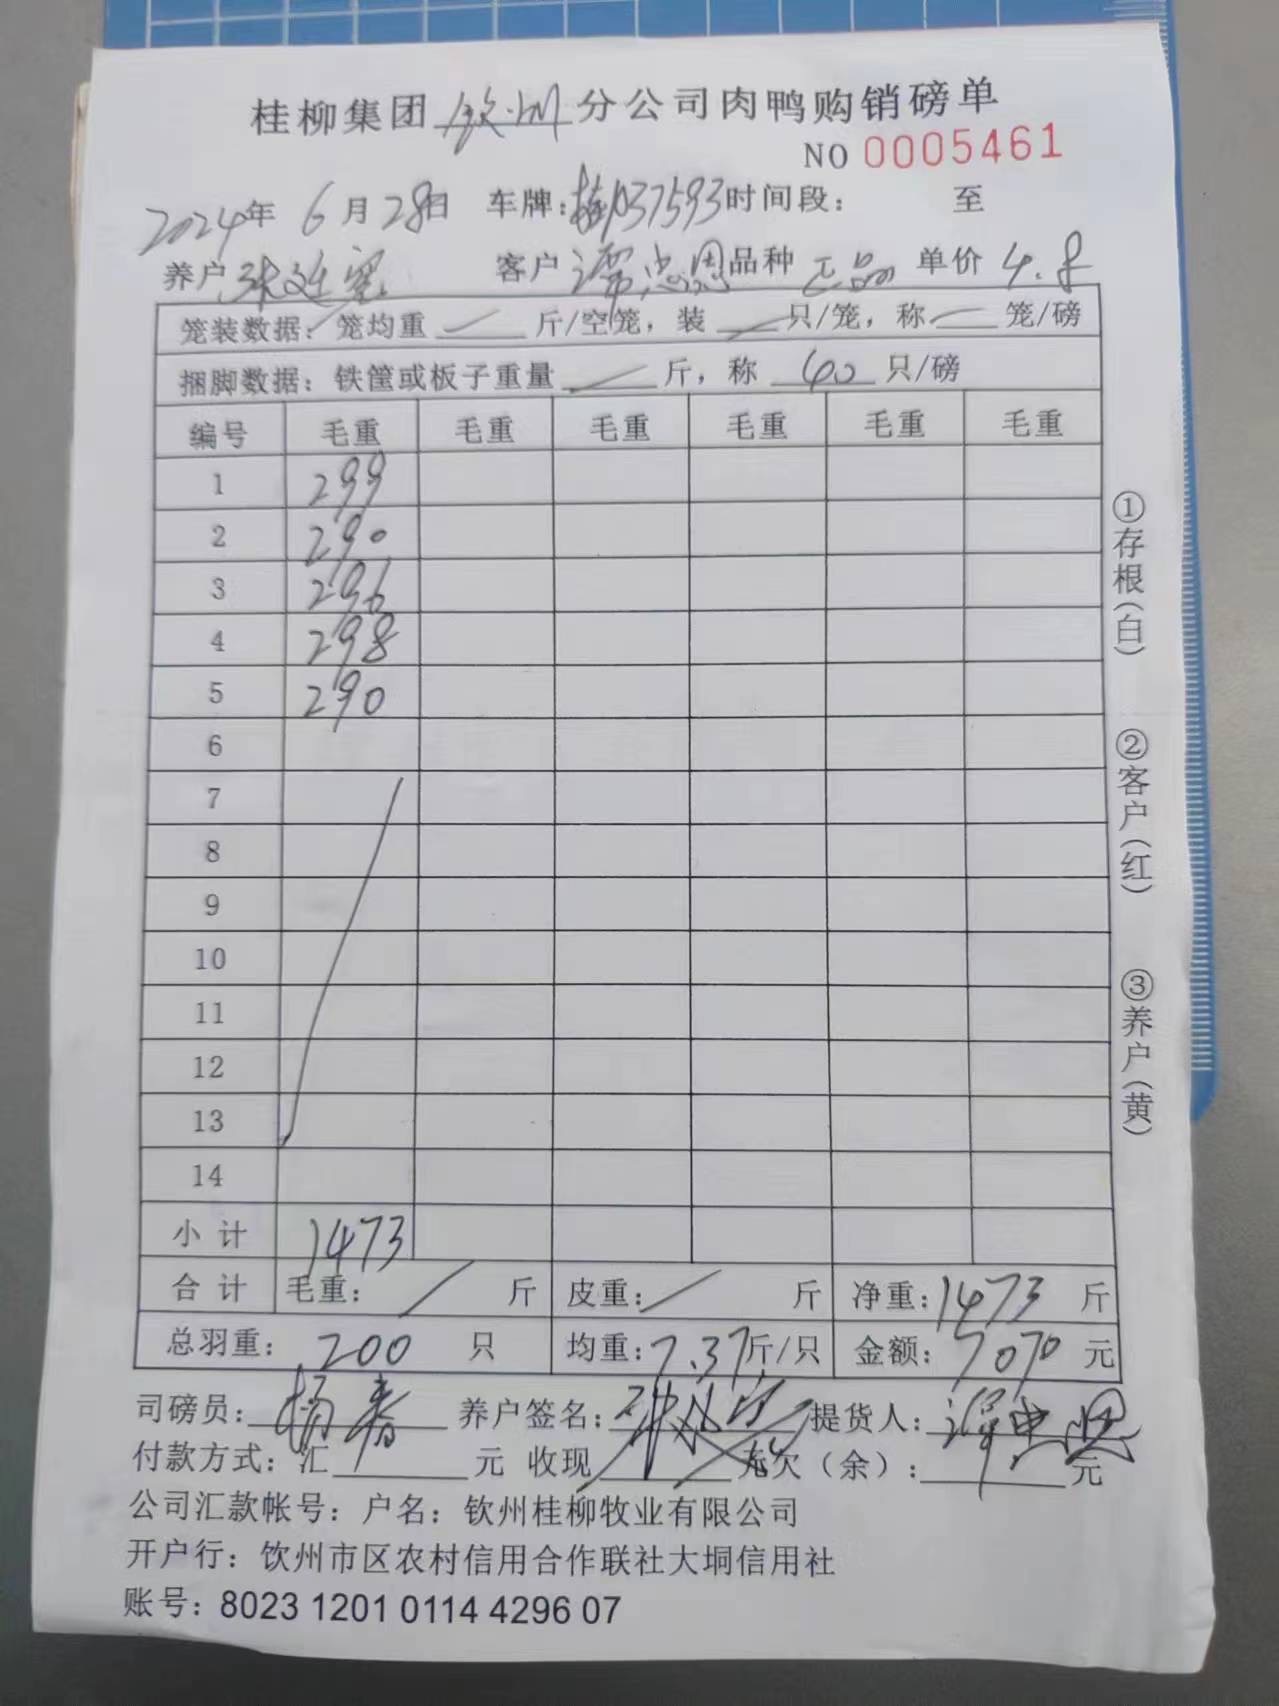 桂柳集团 钦州 分公司肉鸭购销磅单
NO 0005461
2024年 6月28日 车牌:桂 037593 时间段: 至
养户 张廷宽 客户 谭忠恩 品种 正品 单价 4.8
笼装数据: 笼均重 斤/空笼, 装 只/笼, 称 笼/磅
捆脚数据: 铁筐或板子重量 斤, 称 40 只/磅
编号 毛重 毛重 毛重 毛重 毛重 毛重
1 299
2 290
3 296
4 298
5 290
6
7
8
9
10
11
12
13
14
小 计 1473
合 计 毛重: 斤 皮重: 斤 净重: 1473 斤
总羽重: 200 只 均重: 7.37 斤/只 金额: 7070 元
司磅员: 杨春 养户签名: 提货人: 谭忠恩
付款方式: 汇 元 收现 元欠(余): 元
公司汇款帐号: 户名: 钦州桂柳牧业有限公司
开户行: 饮州市区农村信用合作联社大垌信用社
账号: 8023 1201 0114 4296 07
①存根(白)
②客户(红)
③养户(黄)